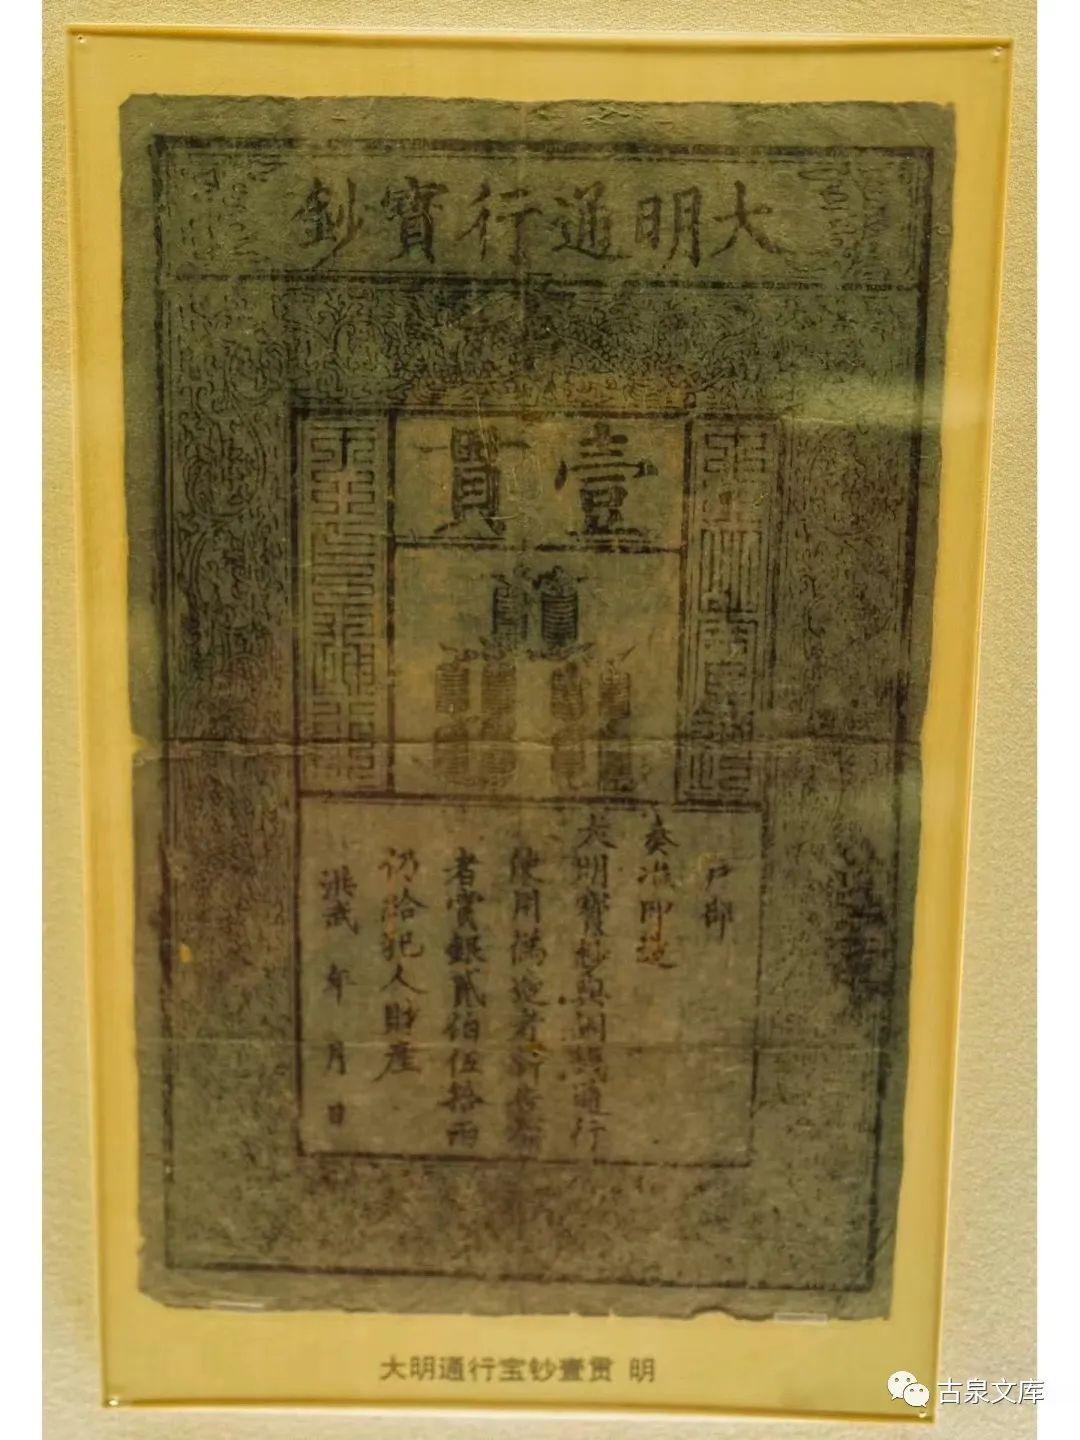 大明通行寶鈔
壹貫
戶部
奏准印造
大明寶鈔與銅錢通行
使用偽造者斬告捕
者賞銀貳伯伍拾兩
仍給犯人財產
洪武 年 月 日
大明通行宝钞壹贯 明
古泉文库